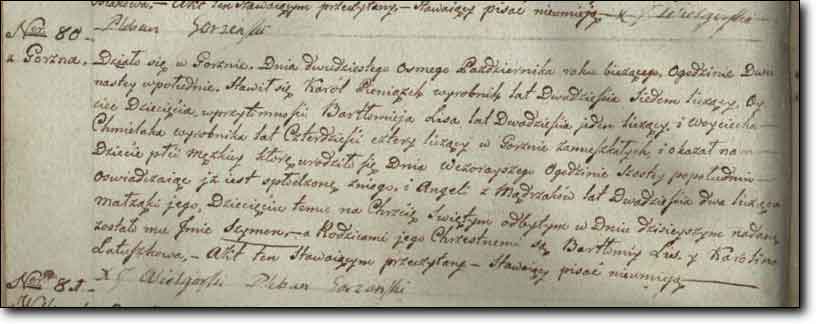 Akt ten Stawaiącym przeczytany, Stawaiący pisać nieumieją X J Wielgorski
Nro 80. Pleban Gorzenski
z Gorzna. Działo się w Gorznie. Dnia dwudziestego Osmego Października roku bieżącego, Ogodzinie Dwu
nastey wpołudnie. Stawił się Karól Pieniążek wyrobnik lat Dwadzieścia Siedem liczący, Oy
ciec Dziecięcia, wprzytomności Bartłomieja Lisa lat Dwadzieścia jeden liczący, i Woyciecha
Chmielaka wyrobnika lat Czterdzieści cztery liczący w Gorznie zamieszkałych, i okazał nam
Dziecie płci męzkiey które urodziło się Dnia Wczorayszego Ogodzinie Szostey popołudniu
oswiadczaiąc iż iest spłodzone zniego, i Angeli z Mądrzaków lat Dwadzieścia dwa licząca
małżąki jego, Dziecięciu temu na Chrzcie Swiętym odbytym w Dniu dzisieyszym nadane
zostało mu Jmie Szymon, a Rodzicami jego Chrzestnemi są Bartłomiy Lis y Karolina
Latuszkowa, – Akt ten Stawaiącym przeczytany – Stawaiący pisać nieumieją
X J Wielgorski Pleban Gorzenski
Nro 81.